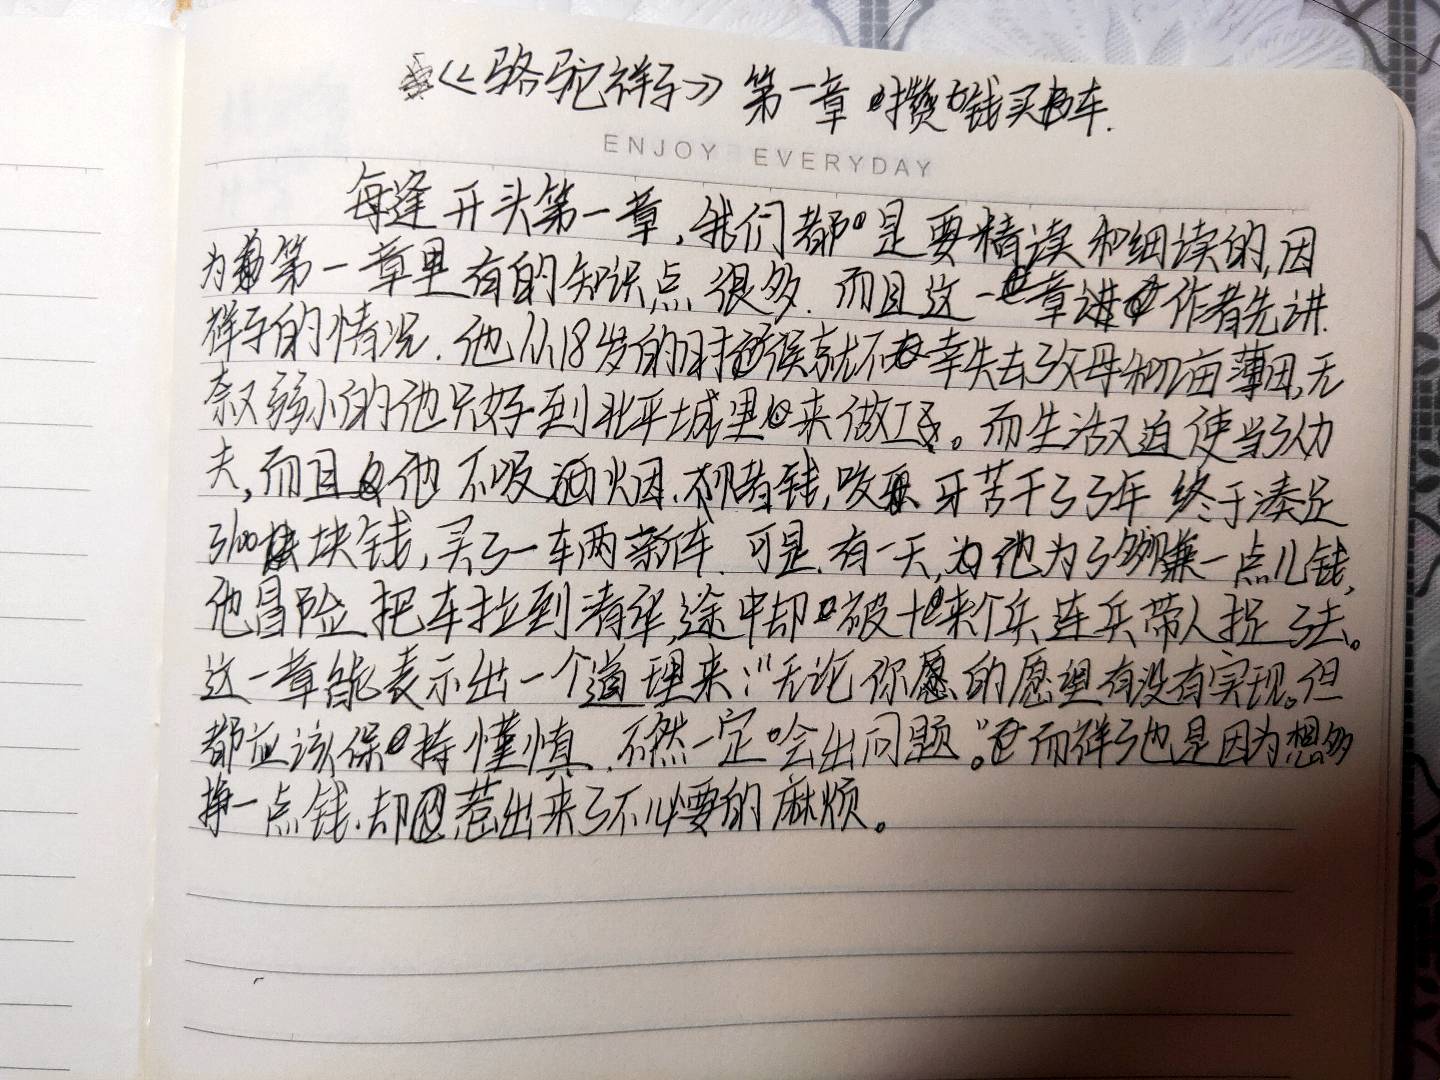 《骆驼祥子》第一章 攒钱买车.
ENJOY EVERYDAY
每逢开头第一章,我们都是要精读和细读的,因
为第一章里有的知识点很多.而且这一章讲作者先讲
祥子的情况.他从18岁的时候就不幸失去了父母和几亩薄田,无
奈又弱小的他只好到北平城里来做工。而生活又迫使当了车
夫,而且他不吸烟.不赌钱,咬牙苦干了3年终于凑足
了100块钱,买了一车两新车.可是.有一天,他为了多赚一点儿钱,
他冒险把车拉到清华,途中却被十来个兵连兵带人捉了去。
这一章能表示出一个道理来:"无论你的愿望有没有实现。但
都应该保持谨慎.不然一定会出问题。"而祥子也是因为想多
挣一点钱.却惹出来了不必要的麻烦。